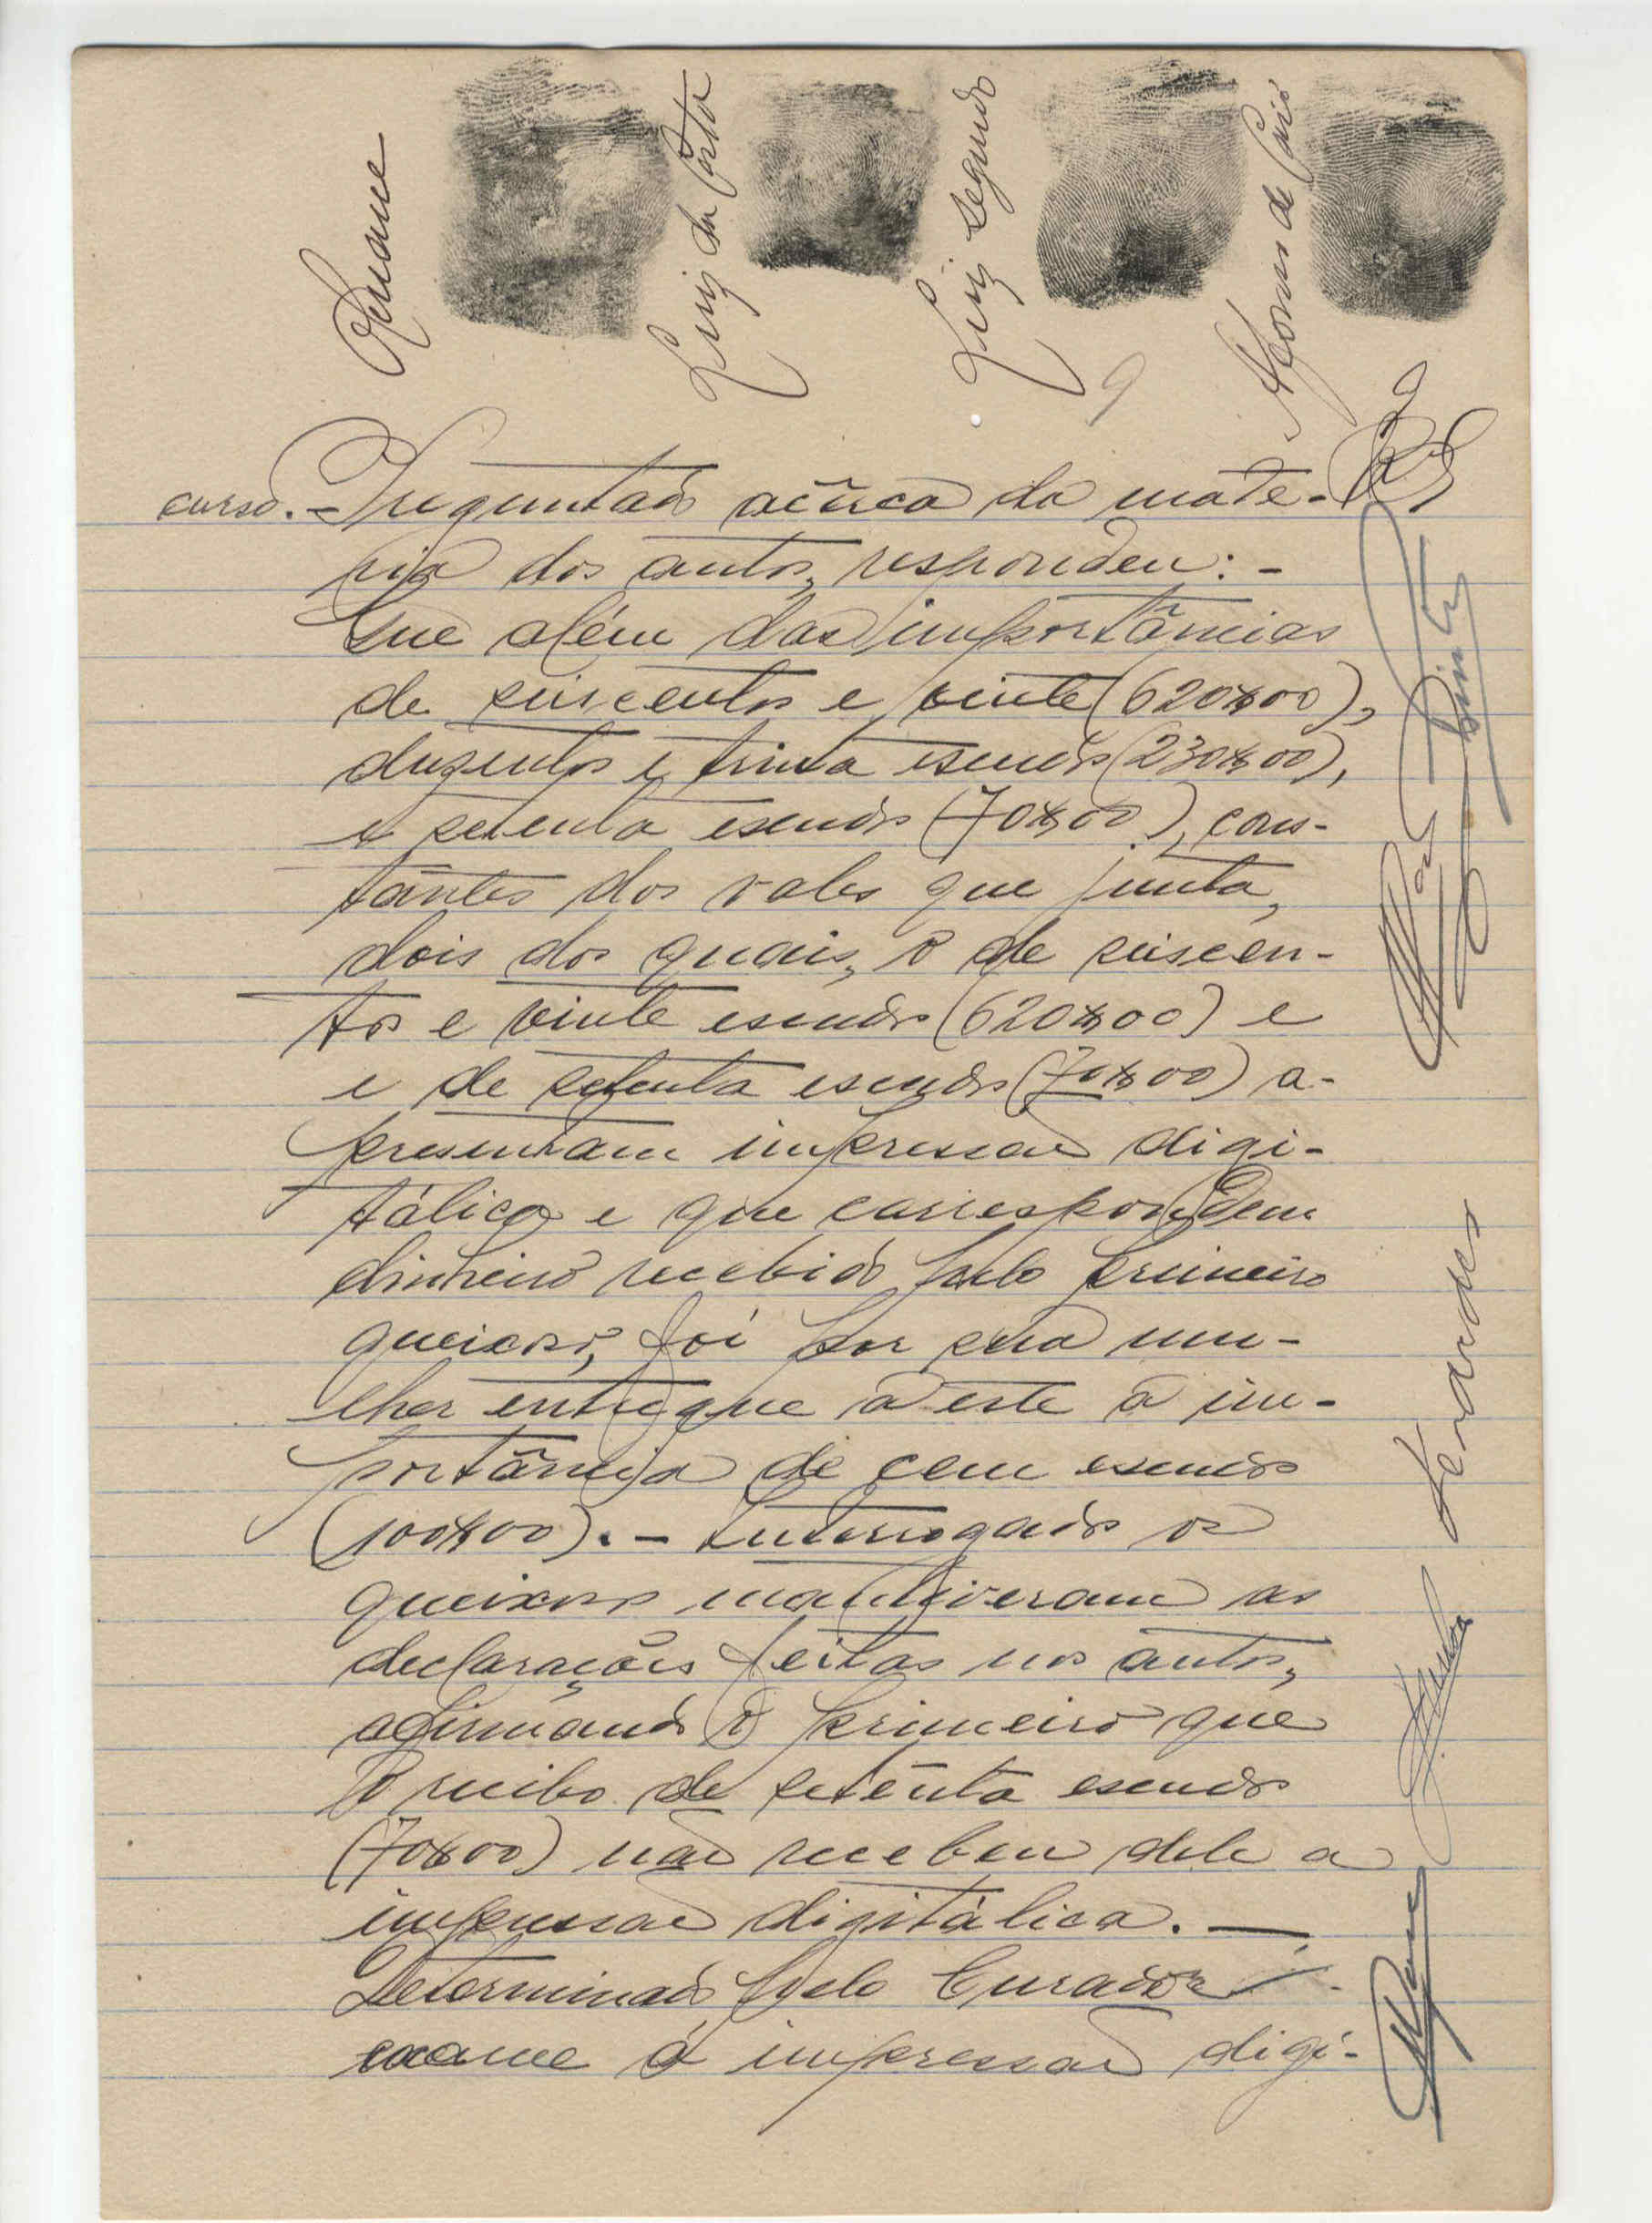 Luiz da Costa
Luiz segundo
Afonso de Caió
9
curso. - Preguntado acêrca da maté-
ria dos autos, respondeu: -
Que além das importâncias
de seiscentos e vinte (620$00),
duzentos e trinta escudos (230$00),
e setenta escudos (70$00), cons-
tantes dos vales que junta,
dois dos quais, o de seiscen-
tos e vinte escudos (620$00) e
e de setenta escudos (70$00) a-
presentam impressão digi-
tálica e que correspondem
dinheiro recebido pelo primeiro
queixoso, foi por sua mu-
lher entregue a este a im-
portância de cem escudos
(100$00). - Interrogados os
queixosos mantiveram as
declarações feitas nos autos,
afirmando o primeiro que
o recibo de setenta escudos
(70$00) não recebeu dele a
impressão digitálica. -
Determinado pelo Curador
exame á impressão digi-
Pinto